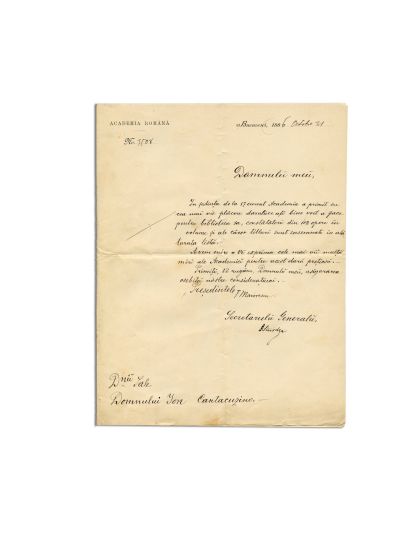 ACADEMIA ROMÂNĂ
Bucuresci, 1886 Octobre 21
No.
Domnului meu,
In ședința de la 17 curent Academia a primit cu
cea mai vie plăcere ați bine voit a face
pentru biblioteca sa, din 102 opere în
volume și ale căror titluri sunt însemnate în
lista.
Avem onóre a Vĕ esprima cele mai vii mulțu
miri ale Academiei pentru acest daru prețios.
Primiți, vĕ rugăm, Domnule meu, asigurarea
osebitei nóstre considerațiuni.
Președintele
Secretariulu Generalu,
Domnului Ion Cantacuzino.